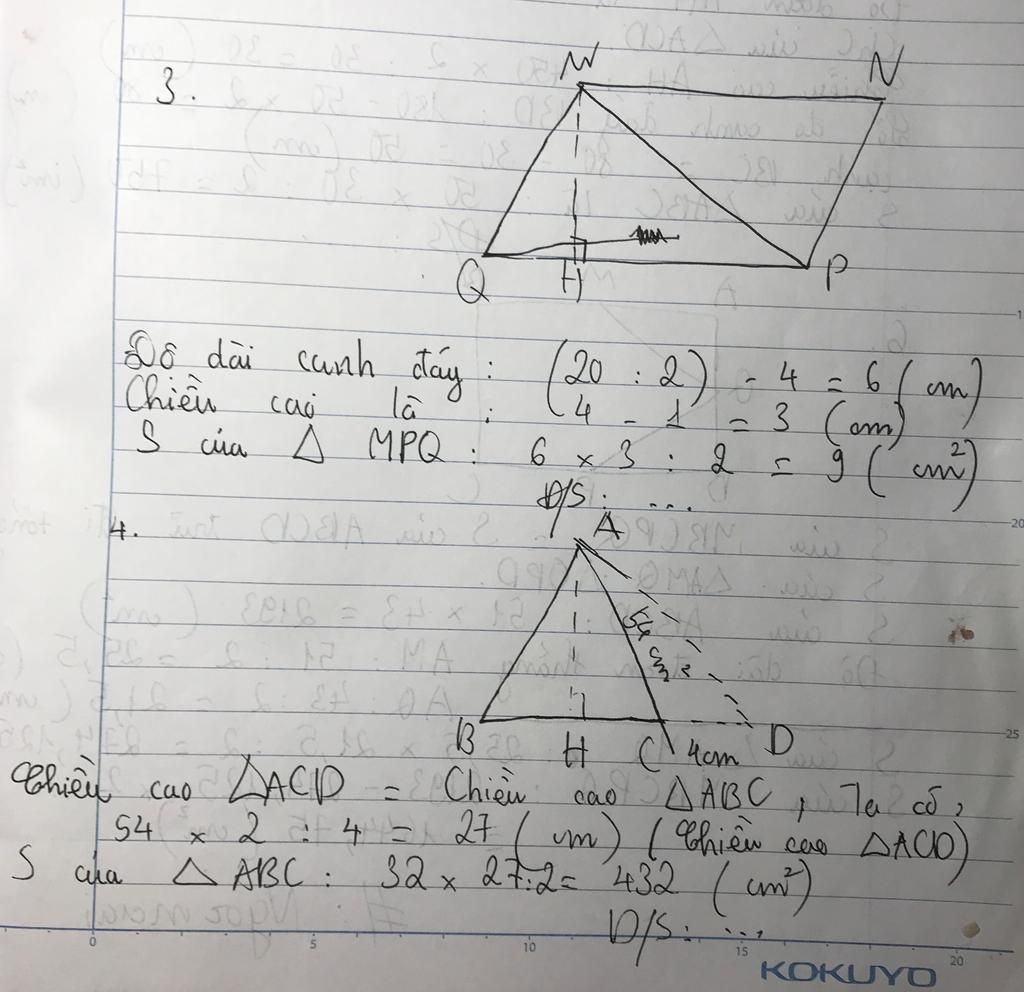 3.
M N
Q H P
Độ dài cạnh đáy : (20 : 2) - 4 = 6 (cm)
Chiều cao là : 4 - 1 = 3 (cm)
S của △ MPQ : 6 x 3 : 2 = 9 (cm²)
Đ/S : ...
4.
A
54 cm²
B H C 4cm D
Chiều cao △ACD = Chiều cao △ABC, Ta có,
54 x 2 : 4 = 27 (cm) (Chiều cao △ACD)
S của △ ABC : 32 x 27:2 = 432 (cm²)
Đ/S : ...
0 5 10 15 20
1
20
25
KOKUYO